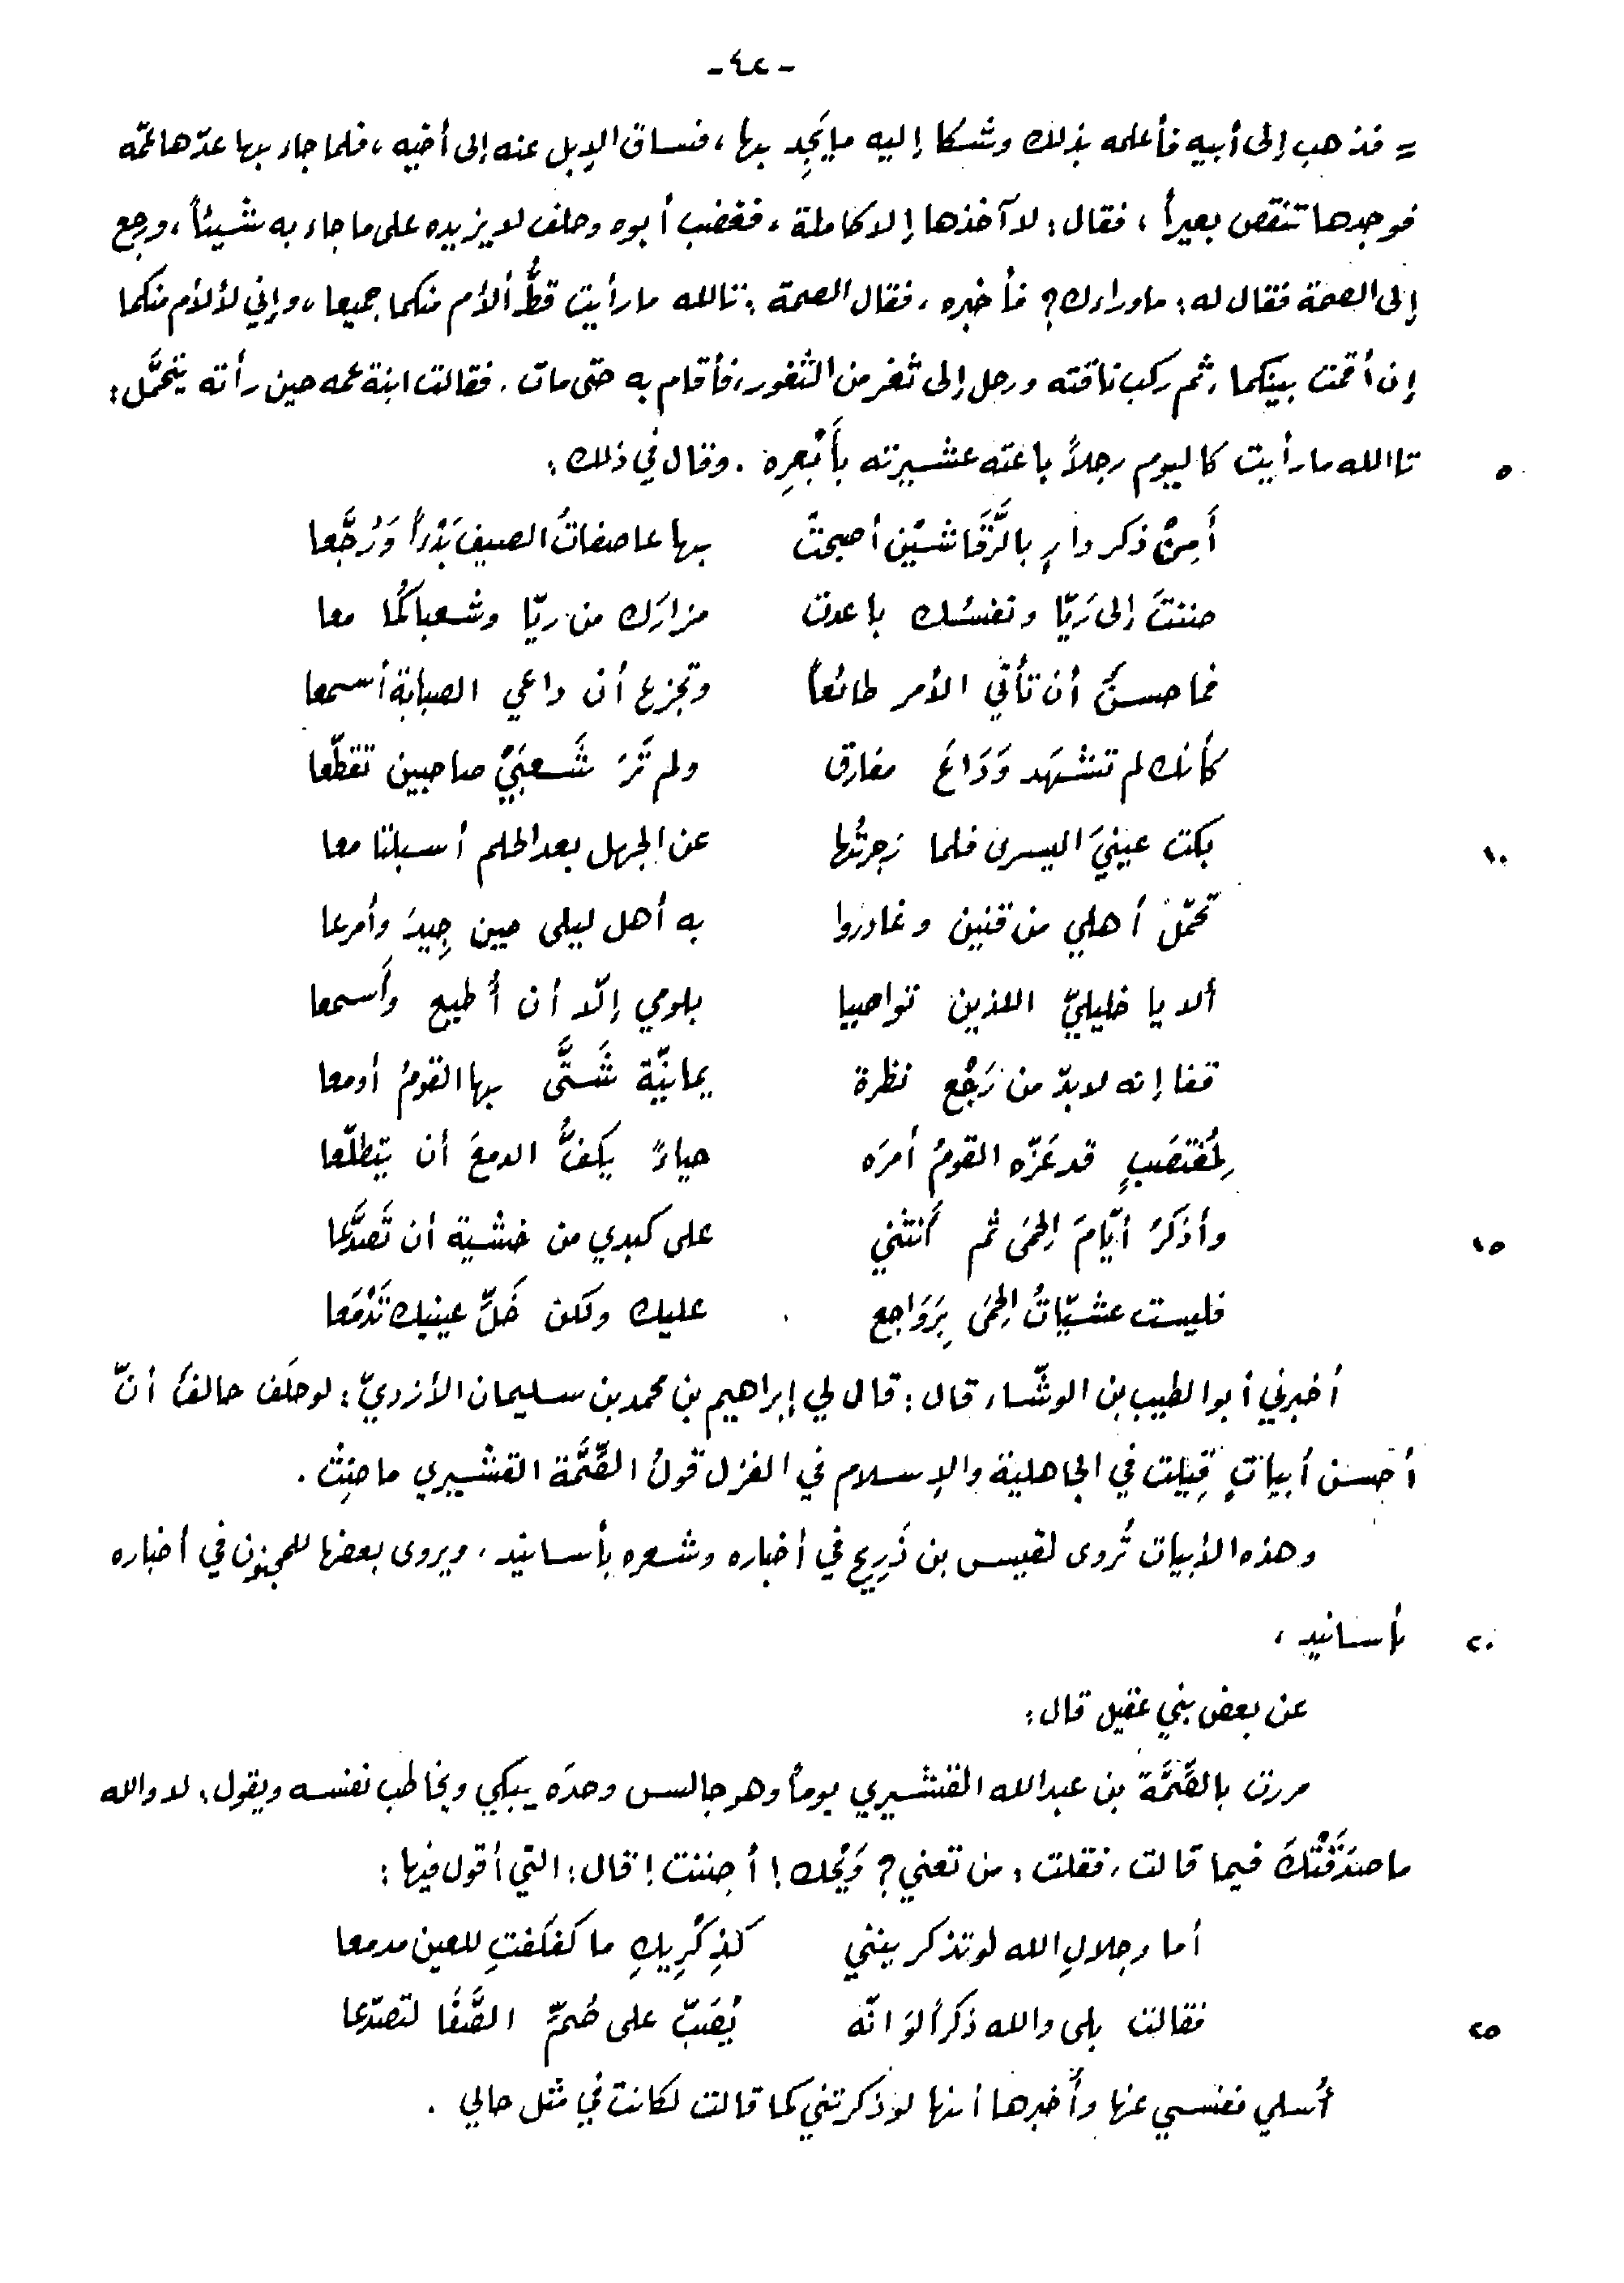 -٤٢-
= فذهب إلى أبيه فأعلمه بذلك وشكا إليه ما يَجِد بها، فساق الإبل عنه إلى أخيه، فلما جاء بها عدّها عمّه
فوجدها تنقص بعيراً، فقال: لا آخذها إلا كاملة، فغضب أبوه وحلف لا يزيده على ما جاء به شيئاً، ورجع
إلى الصمة فقال له: ما وراءك؟ فأخبره، فقال الصمة: تالله ما رأيت قطُّ ألأم منكما جميعا، وإني لألأم منكما
إن أقمت بينكما، ثم ركب ناقته ورحل إلى ثغر من الثغور، فأقام به حتى مات. فقالت ابنة عمه حين رأته يتحمَّل:
٥ تا الله ما رأيت كاليوم رجلاً باعته عشيرته بأَبْعِرة. وقال في ذلك:
أَمِنْ ذكر دارٍ بالرَّقَاشَيْن أصبحتْ بها عاصفاتُ الصيف بَدْءاً وَرُجَّعا
حننتَ إلى رَيّا ونفسُك باعدت مزارَك من ريّا وشعباكُما معا
فما حسنٌ أن تأتي الأمر طائعاً وتجزع أن داعي الصبابة أسمعا
كأنك لم تشهَد وَدَاعَ مفارق ولم تَرَ شَعبَيْ صاحبين تقطّعا
١٠ بكت عينيَ اليسرى فلما زجرتُها عن الجهل بعد الحلم أسبلتا معا
تحمّل أهلي من قنين وغادروا به أهل ليلى حين جِيدَ وأمرعا
ألا يا خليليّ اللذين تواصيا بلومي إلّا أن أُطيع وأَسمعا
قفا إنه لا بدّ من رَجْع نظرة يمانيّة شَتَّى بها القومُ أو معا
لِمُغْتَصَبٍ قد عَزّه القومُ أمرَه حياءً يكفُّ الدمعَ أن يتطلّعا
١٥ وأذكرُ أيّامَ الحِمَى ثم أَنثني على كبدي من خشية أن تَصَدَّعا
فليست عشيّاتُ الحِمَى بِرَوَاجع عليك ولكن خَلِّ عينيك تَدْمَعا
أخبرني أبو الطيب بن الوشّاء قال: قال لي إبراهيم بن محمد بن سليمان الأزديّ: لو حلَف حالفٌ أنّ
أحسن أبياتٍ قِيلت في الجاهلية والإسلام في الغزل قولُ الصِّمَّة القشيري ما حنِث.
وهذه الأبيات تُروى لقيس بن ذَرِيح في أخباره وشعره بأسانيد، ويروى بعضها للمجنون في أخباره
٢٠ بأسانيد،
عن بعض بني عقيل قال:
مررت بالصِّمَّة بن عبد الله القشيري يوماً وهو جالس وحدَه يبكي ويخاطب نفسه ويقول: لا والله
ما صدَقَتْكَ فيما قالت، فقلت: من تعني؟ وَيْحك! أجننت! قال: التي أقول فيها:
أما وجلالِ الله لو تذكرينني كذِكْرِيكِ ما كفكفتِ للعين مدمعا
٢٥ فقالت بلى والله ذكراً لوَ انّه يُصَبّ على صُمِّ الصَّفَا لتصدّعا
أُسلي نفسي عنها وأُخبرها أنها لو ذكرتني كما قالت لكانت في مثل حالي.